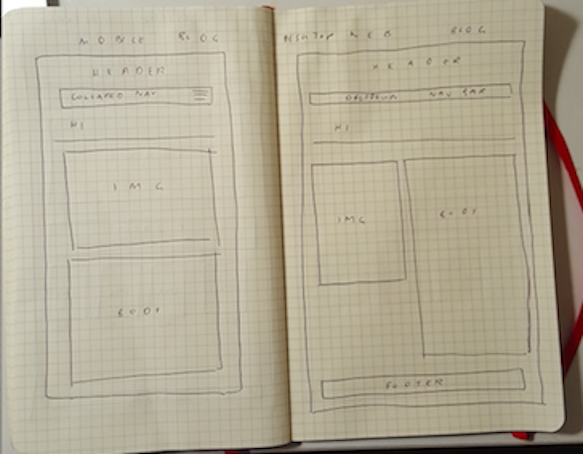 MOBILE BLOG
HEADER
COLLAPSED NAV
H1
IMG
BODY
DESKTOP WEB BLOG
HEADER
NAV BAR
H1
IMG
BODY
FOOTER